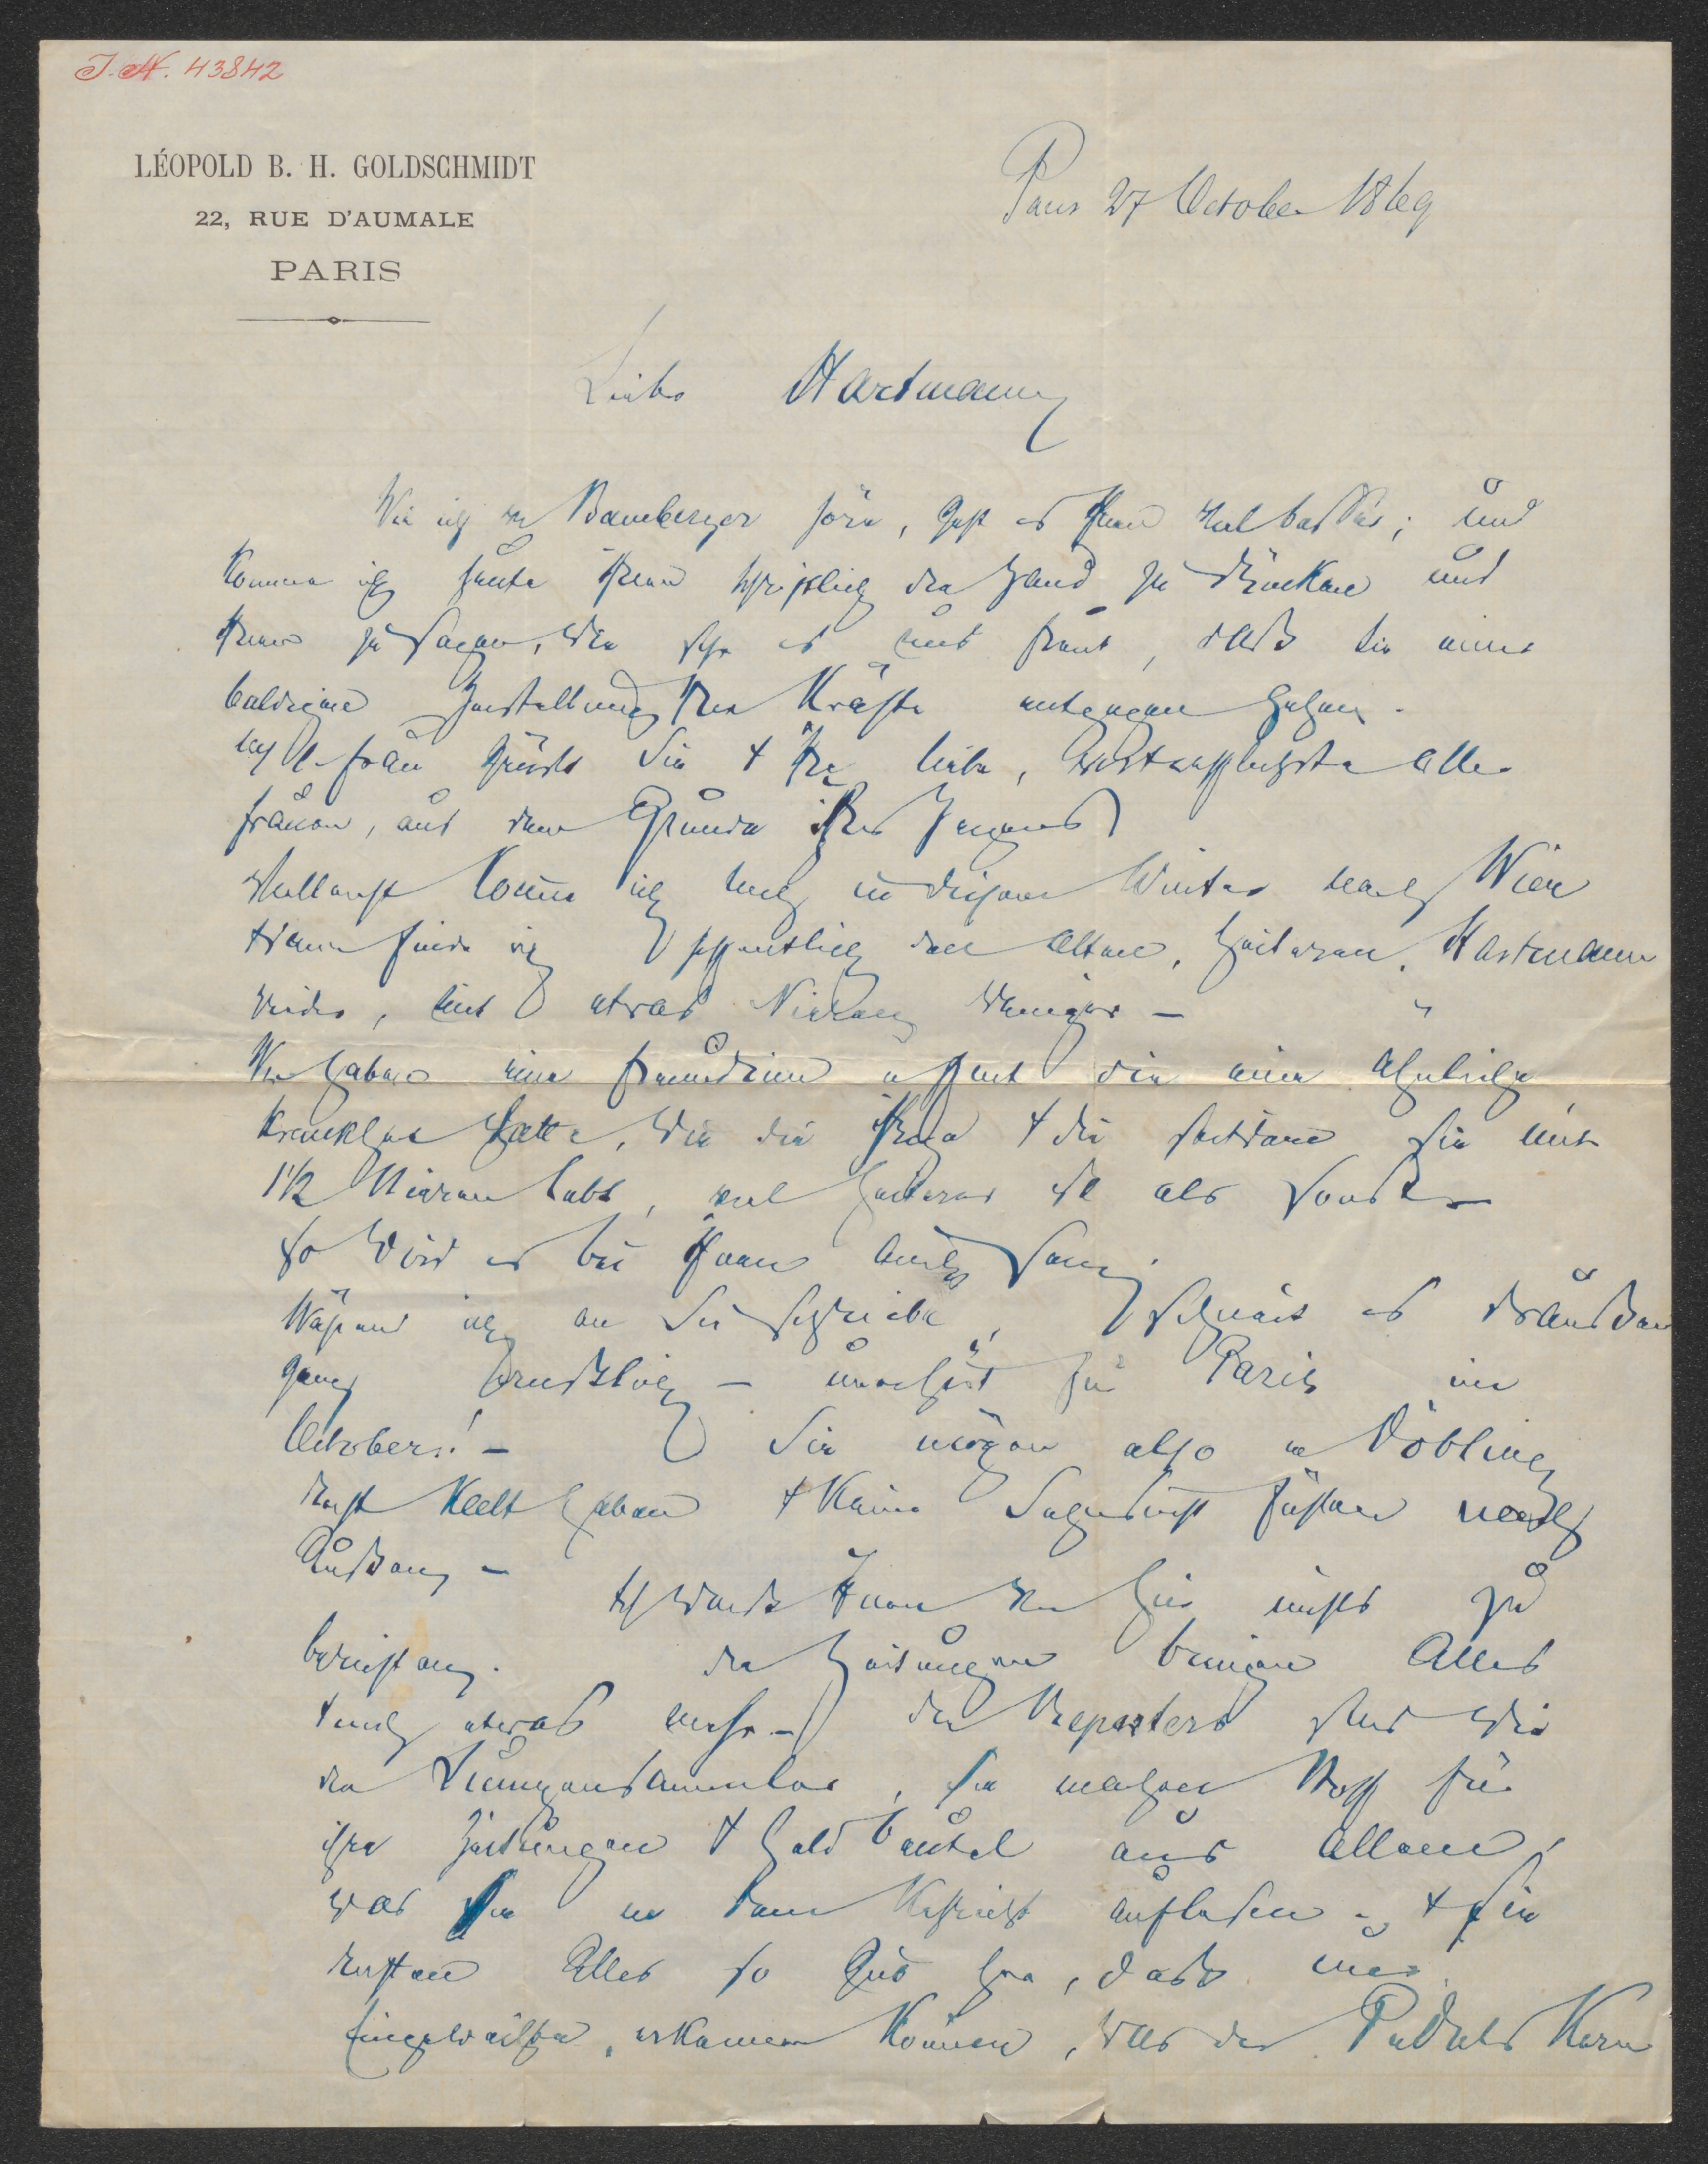 J. N. 43842
LÉOPOLD B. H. GOLDSCHMIDT
22, RUE D'AUMALE
PARIS
Paris 27 October 1869
Lieber Hartmann
Wie ich von Bamberger höre, geht es Ihnen viel besser; und
komme ich heute Ihnen schriftlich die Hand zu drücken und
Ihnen zu sagen, wie sehr es uns freut, daß Sie einer
baldigen Herstellung Ihrer Kräfte entgegen gehen.
Frau grüßt Sie & Ihre liebe, vortrefflichste aller
Frauen, aus dem Grunde ihres Herzens
Vielleicht komme ich noch in diesem Winter nach Wien
& dann finde ich hoffentlich den alten, heiteren Hartmann
wieder, mit etwas Nieren weniger –
Wir haben eine Freundin die eine ähnliche
Krankheit hatte, wie die Ihre & die seitdem sie mit
1 1/2 Nieren lebt, viel heiterer ist als sonst –
So wird es bei Ihnen auch sein.
Während ich an Sie schreibe, schneit es draußen
ganz ernstlich – unerhört für Paris im
October! – Sie mögen also in Döbling
recht kalt haben & keine Sehnsucht fühlen nach
Außen – Ich wüßte Ihnen von hier nichts zu
berichten. Die Zeitungen bringen Alles
& noch etwas mehr – die Reporters sind wie
die Lumpensammler, sie machen Stoff für
ihre Zeitungen & Geldbeutel aus allem,
was sie in dem Kehricht auflesen – & sie
richten Alles so gut her, daß nur
Eingeweihte erkennen können, was des Pudels Kern